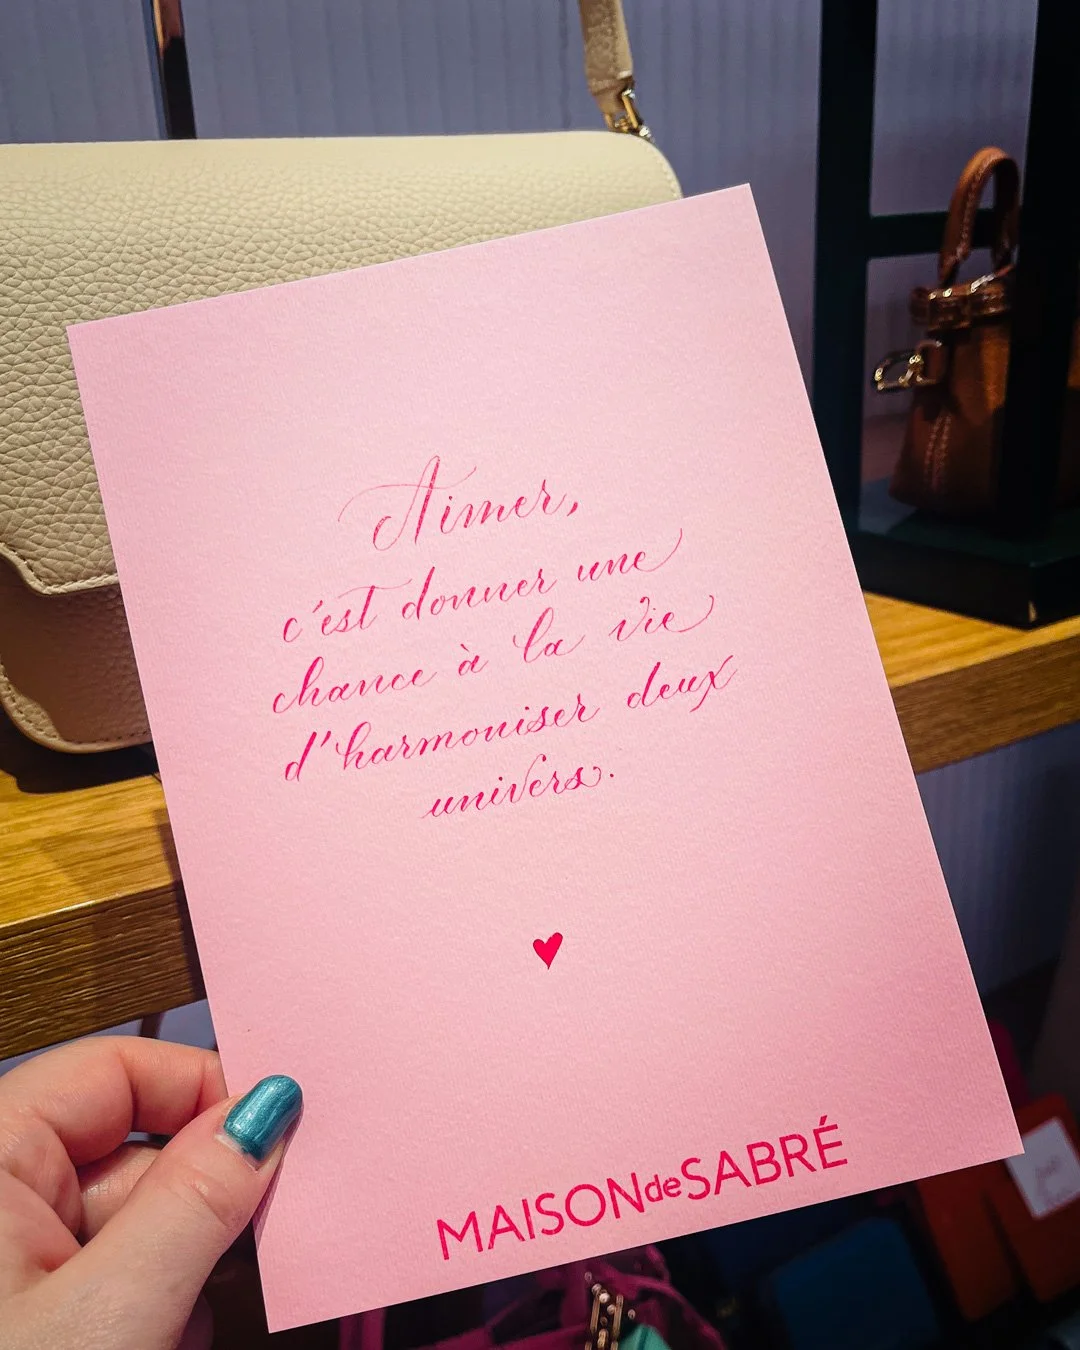 Aimer,
c'est donner une
chance à la vie
d'harmoniser deux
univers.
MAISONdeSABRÉ